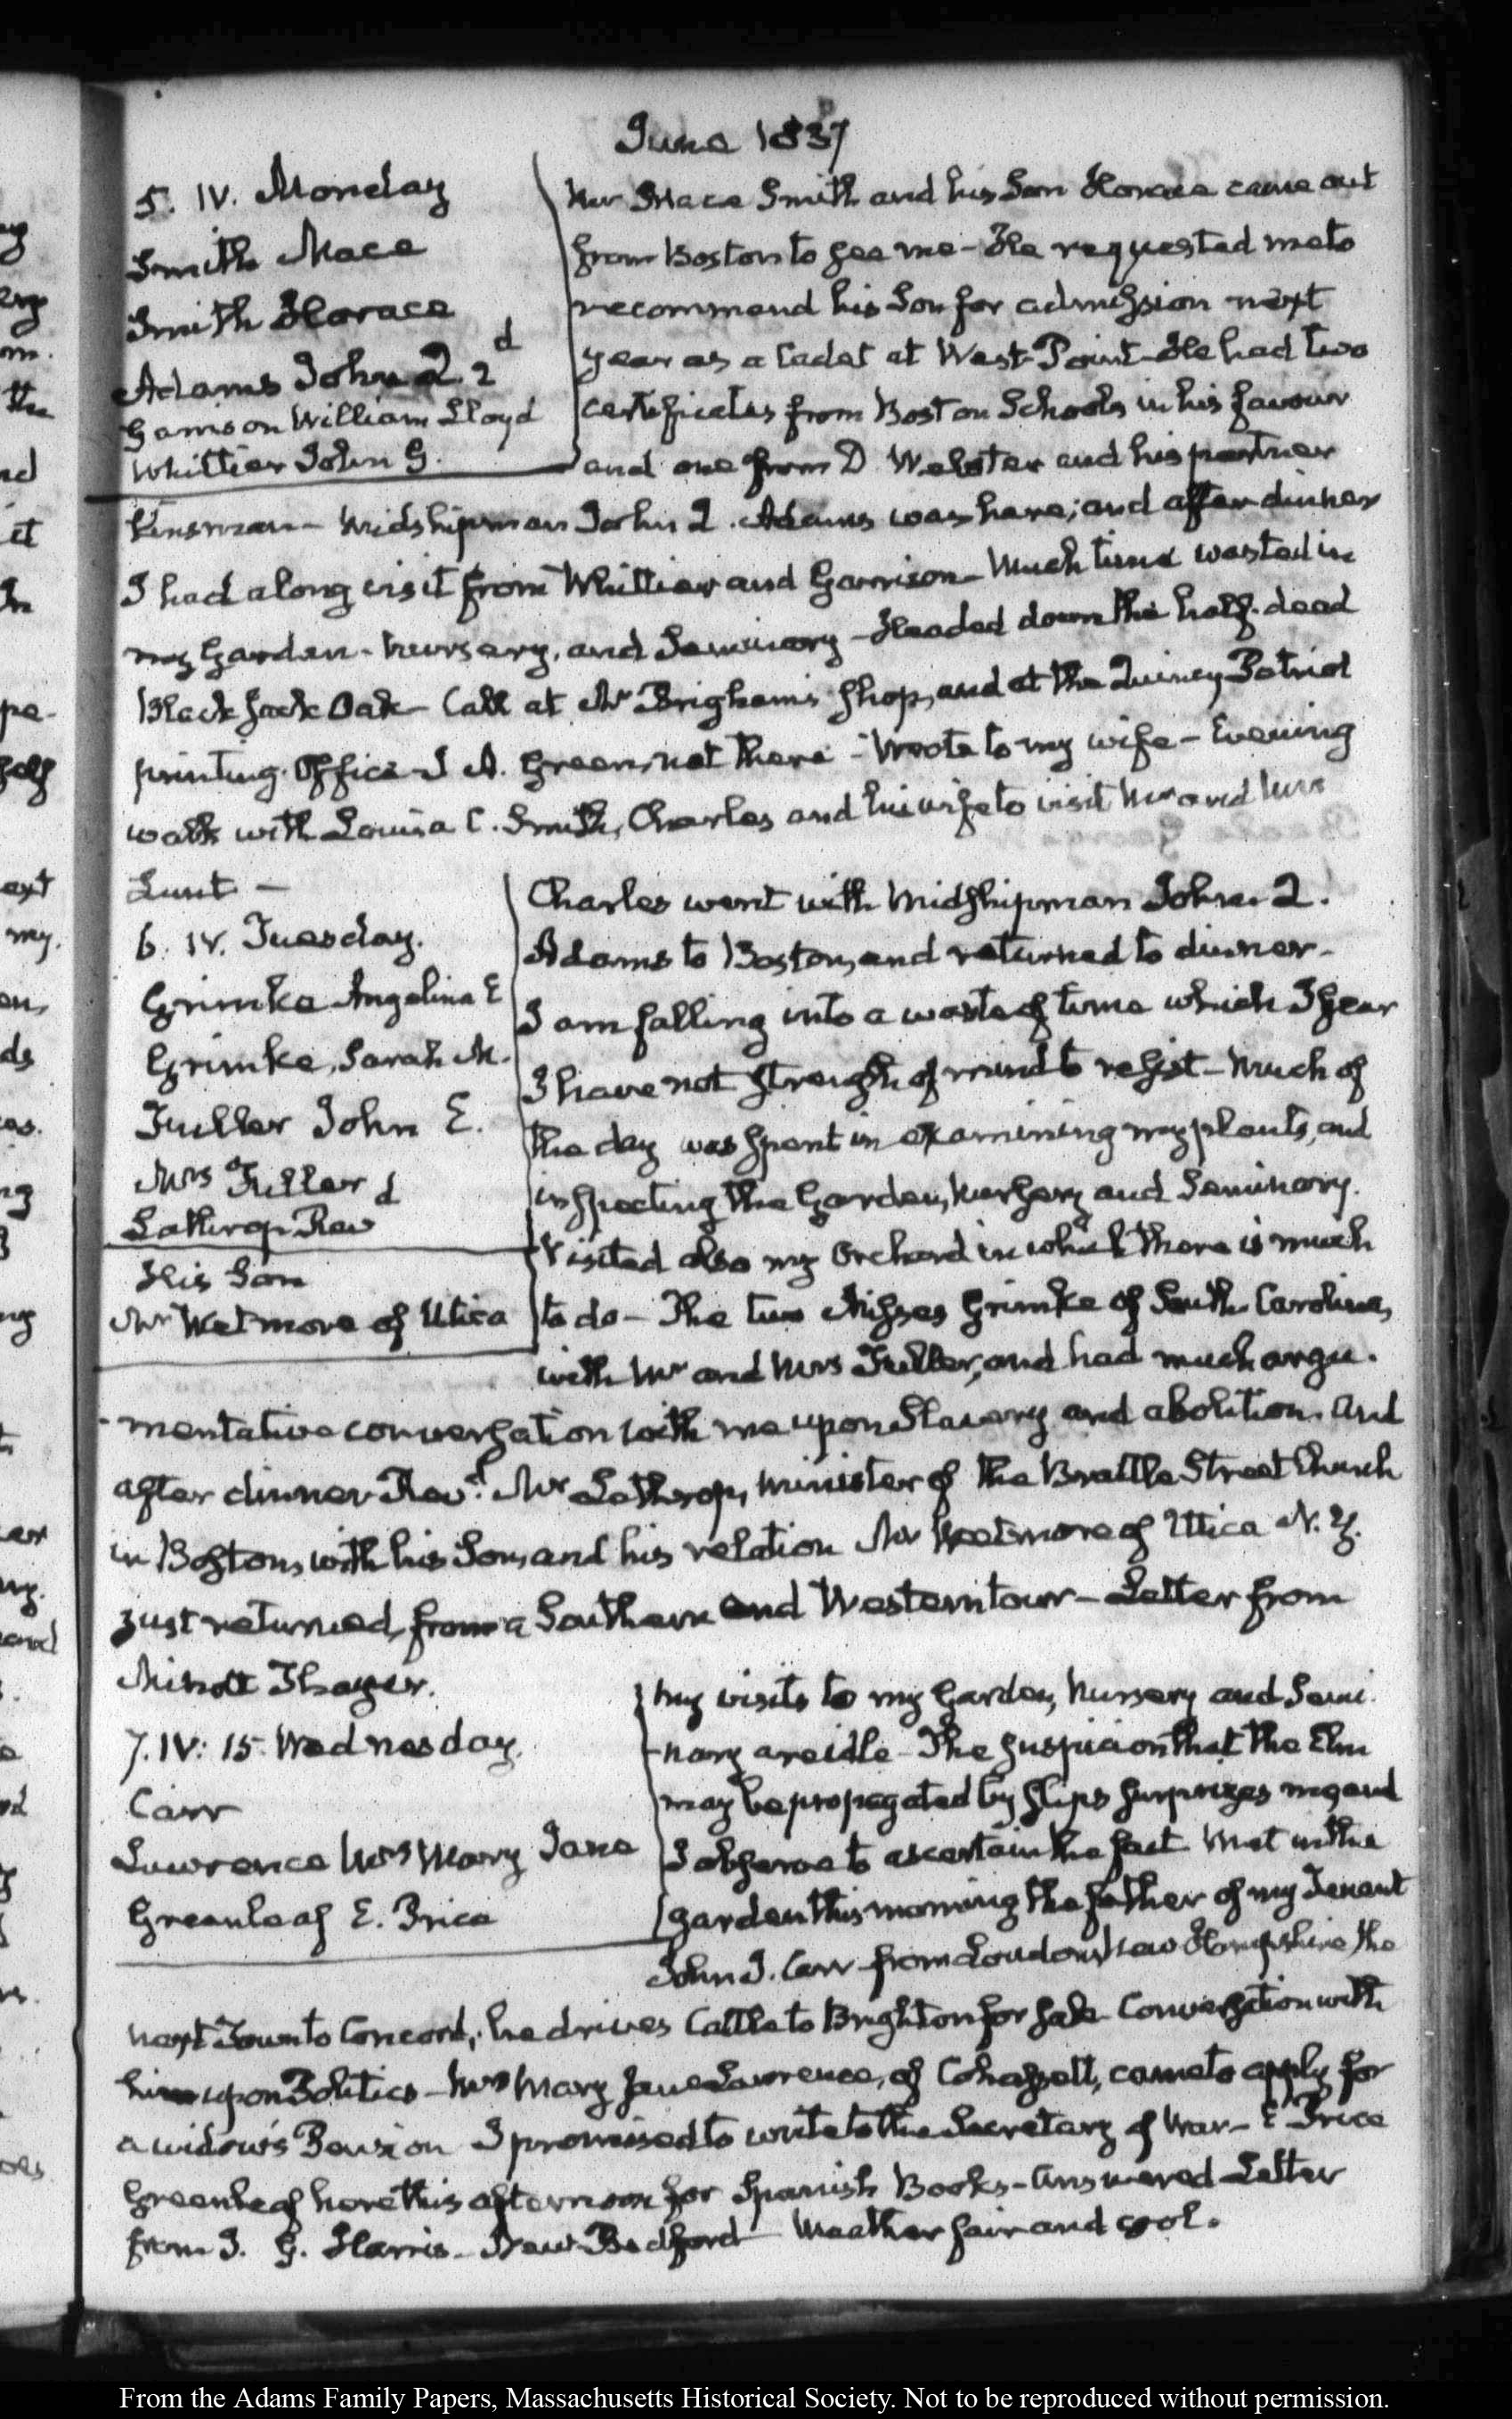 June 1837
5. IV. Monday
Smith Mace
Smith Horace
Adams John Q. 2d
Garrison William Lloyd
Whittier John G.
Mr Mace Smith and his Son Horace came out
from Boston to see me - He requested me to
recommend his Son for admission next
year as a Cadet at West-Point - He had two
certificates from Boston Schools in his favour
and one from D. Webster and his partner
Kinsman - Midshipman John Q. Adams was here; and after dinner
I had a long visit from Whittier and Garrison - Much time wasted in
my Garden - Nursery, and Seminary - Headed down the half-dead
Black Jack Oak - Call at Mr Brigham's shop, and at the Quincy Patriot
printing Office - J. A. Green, not there - Wrote to my wife - Evening
walk with Louisa C. Smith, Charles and his wife to visit Mr and Mrs
Lunt -
6. IV. Tuesday.
Grimke Angelina E
Grimke, Sarah M.
Fuller John E.
Mrs Fuller
Lothrop Revd
His Son
Mr Wetmore of Utica
Charles went with Midshipman John Q.
Adams to Boston, and returned to dinner -
I am falling into a waste of time which I fear
I have not strength of mind to resist - Much of
the day was spent in examining my plants, and
inspecting the Garden, Nursery and Seminary.
Visited also my Orchard in which there is much
to do - The two Misses Grimke of South-Carolina,
with Mr and Mrs Fuller, and had much argu-
-mentative conversation with me upon Slavery and abolition. And
after dinner Revd. Mr Lothrop, Minister of the Brattle Street Church
in Boston, with his Son, and his relation Mr Wetmore of Utica N. Y.
just returned from a Southern and Western tour - Letter from
Minott Thayer.
7. IV: 15. Wednesday.
Carr
Lawrence Mrs Mary Jane
Greenleaf E. Price
My visits to my Garden, Nursery and Semi-
-nary are idle - The suspicion that the Elm
may be propagated by slips surprizes me, and
I observe to ascertain the fact. Met in the
garden this morning the father of my Tenant
John J. Carr from Loudon, New Hampshire the
next Town to Concord; he drives Cattle to Brighton for sale. Conversation with
him upon Politics - Mrs Mary Jane Lawrence, of Cohassett, came to apply for
a widow's Pension I promised to write to the Secretary of War - E Price
Greenleaf here this afternoon for Spanish Books - Answered Letter
from J. G. Harris - New-Bedford Weather fair and cool.
From the Adams Family Papers, Massachusetts Historical Society. Not to be reproduced without permission.